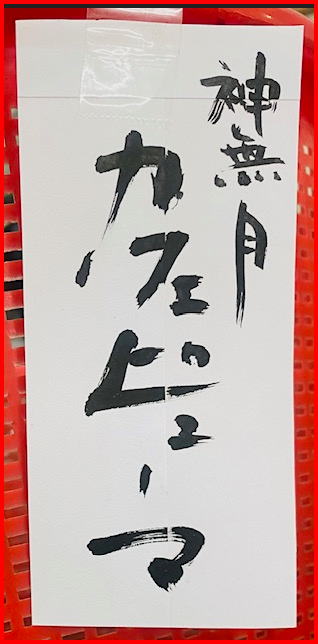 神無月
カフェピューマ